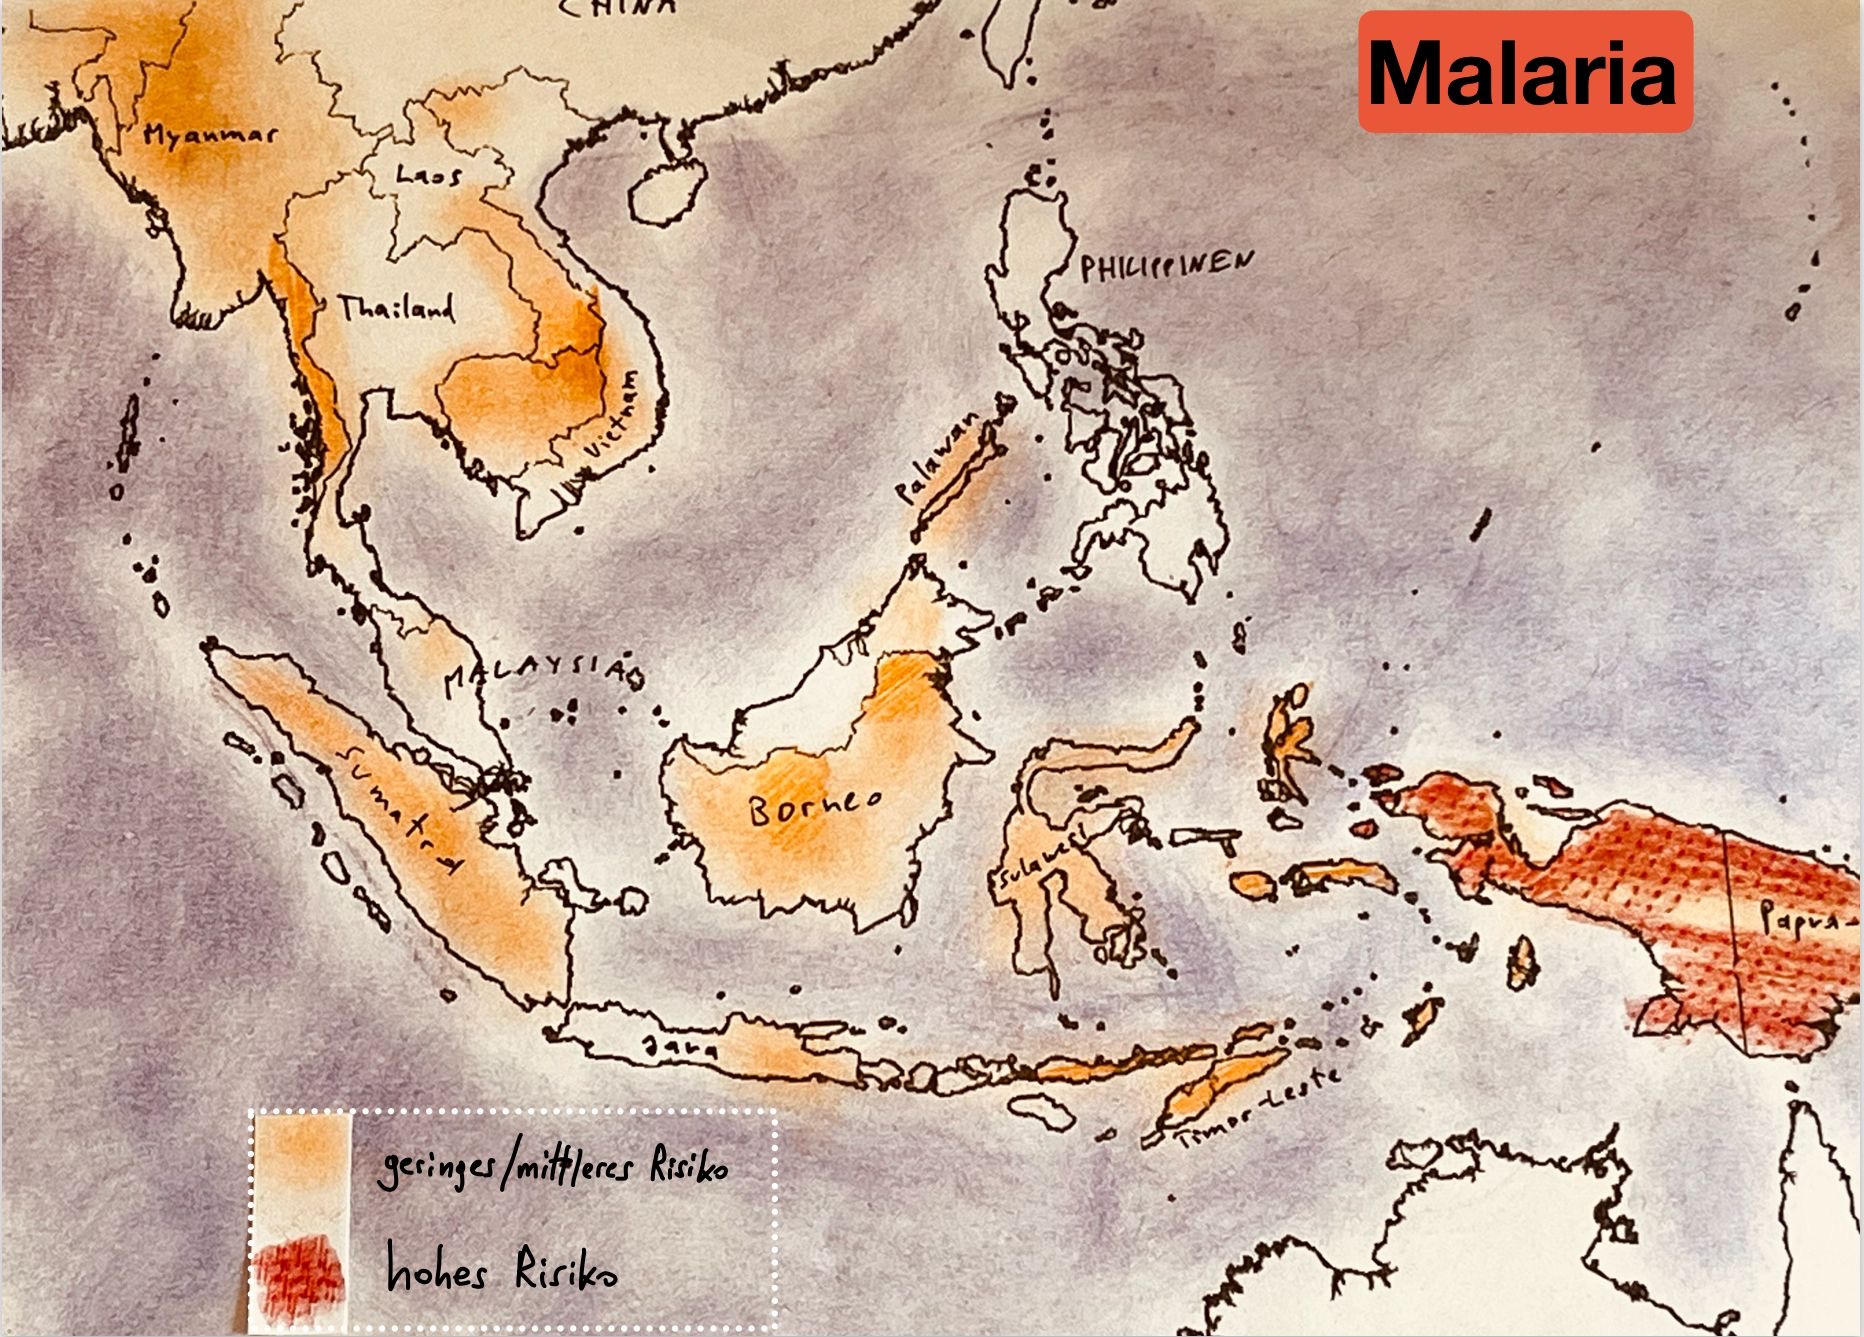 CHINA
Malaria
Myanmar
Laos
PHILIPPINEN
Thailand
Vietnam
Palawan
MALAYSIA
Sumatra
Borneo
Sulawesi
Papua-
Java
Timor-Leste
geringes/mittleres Risiko
hohes Risiko